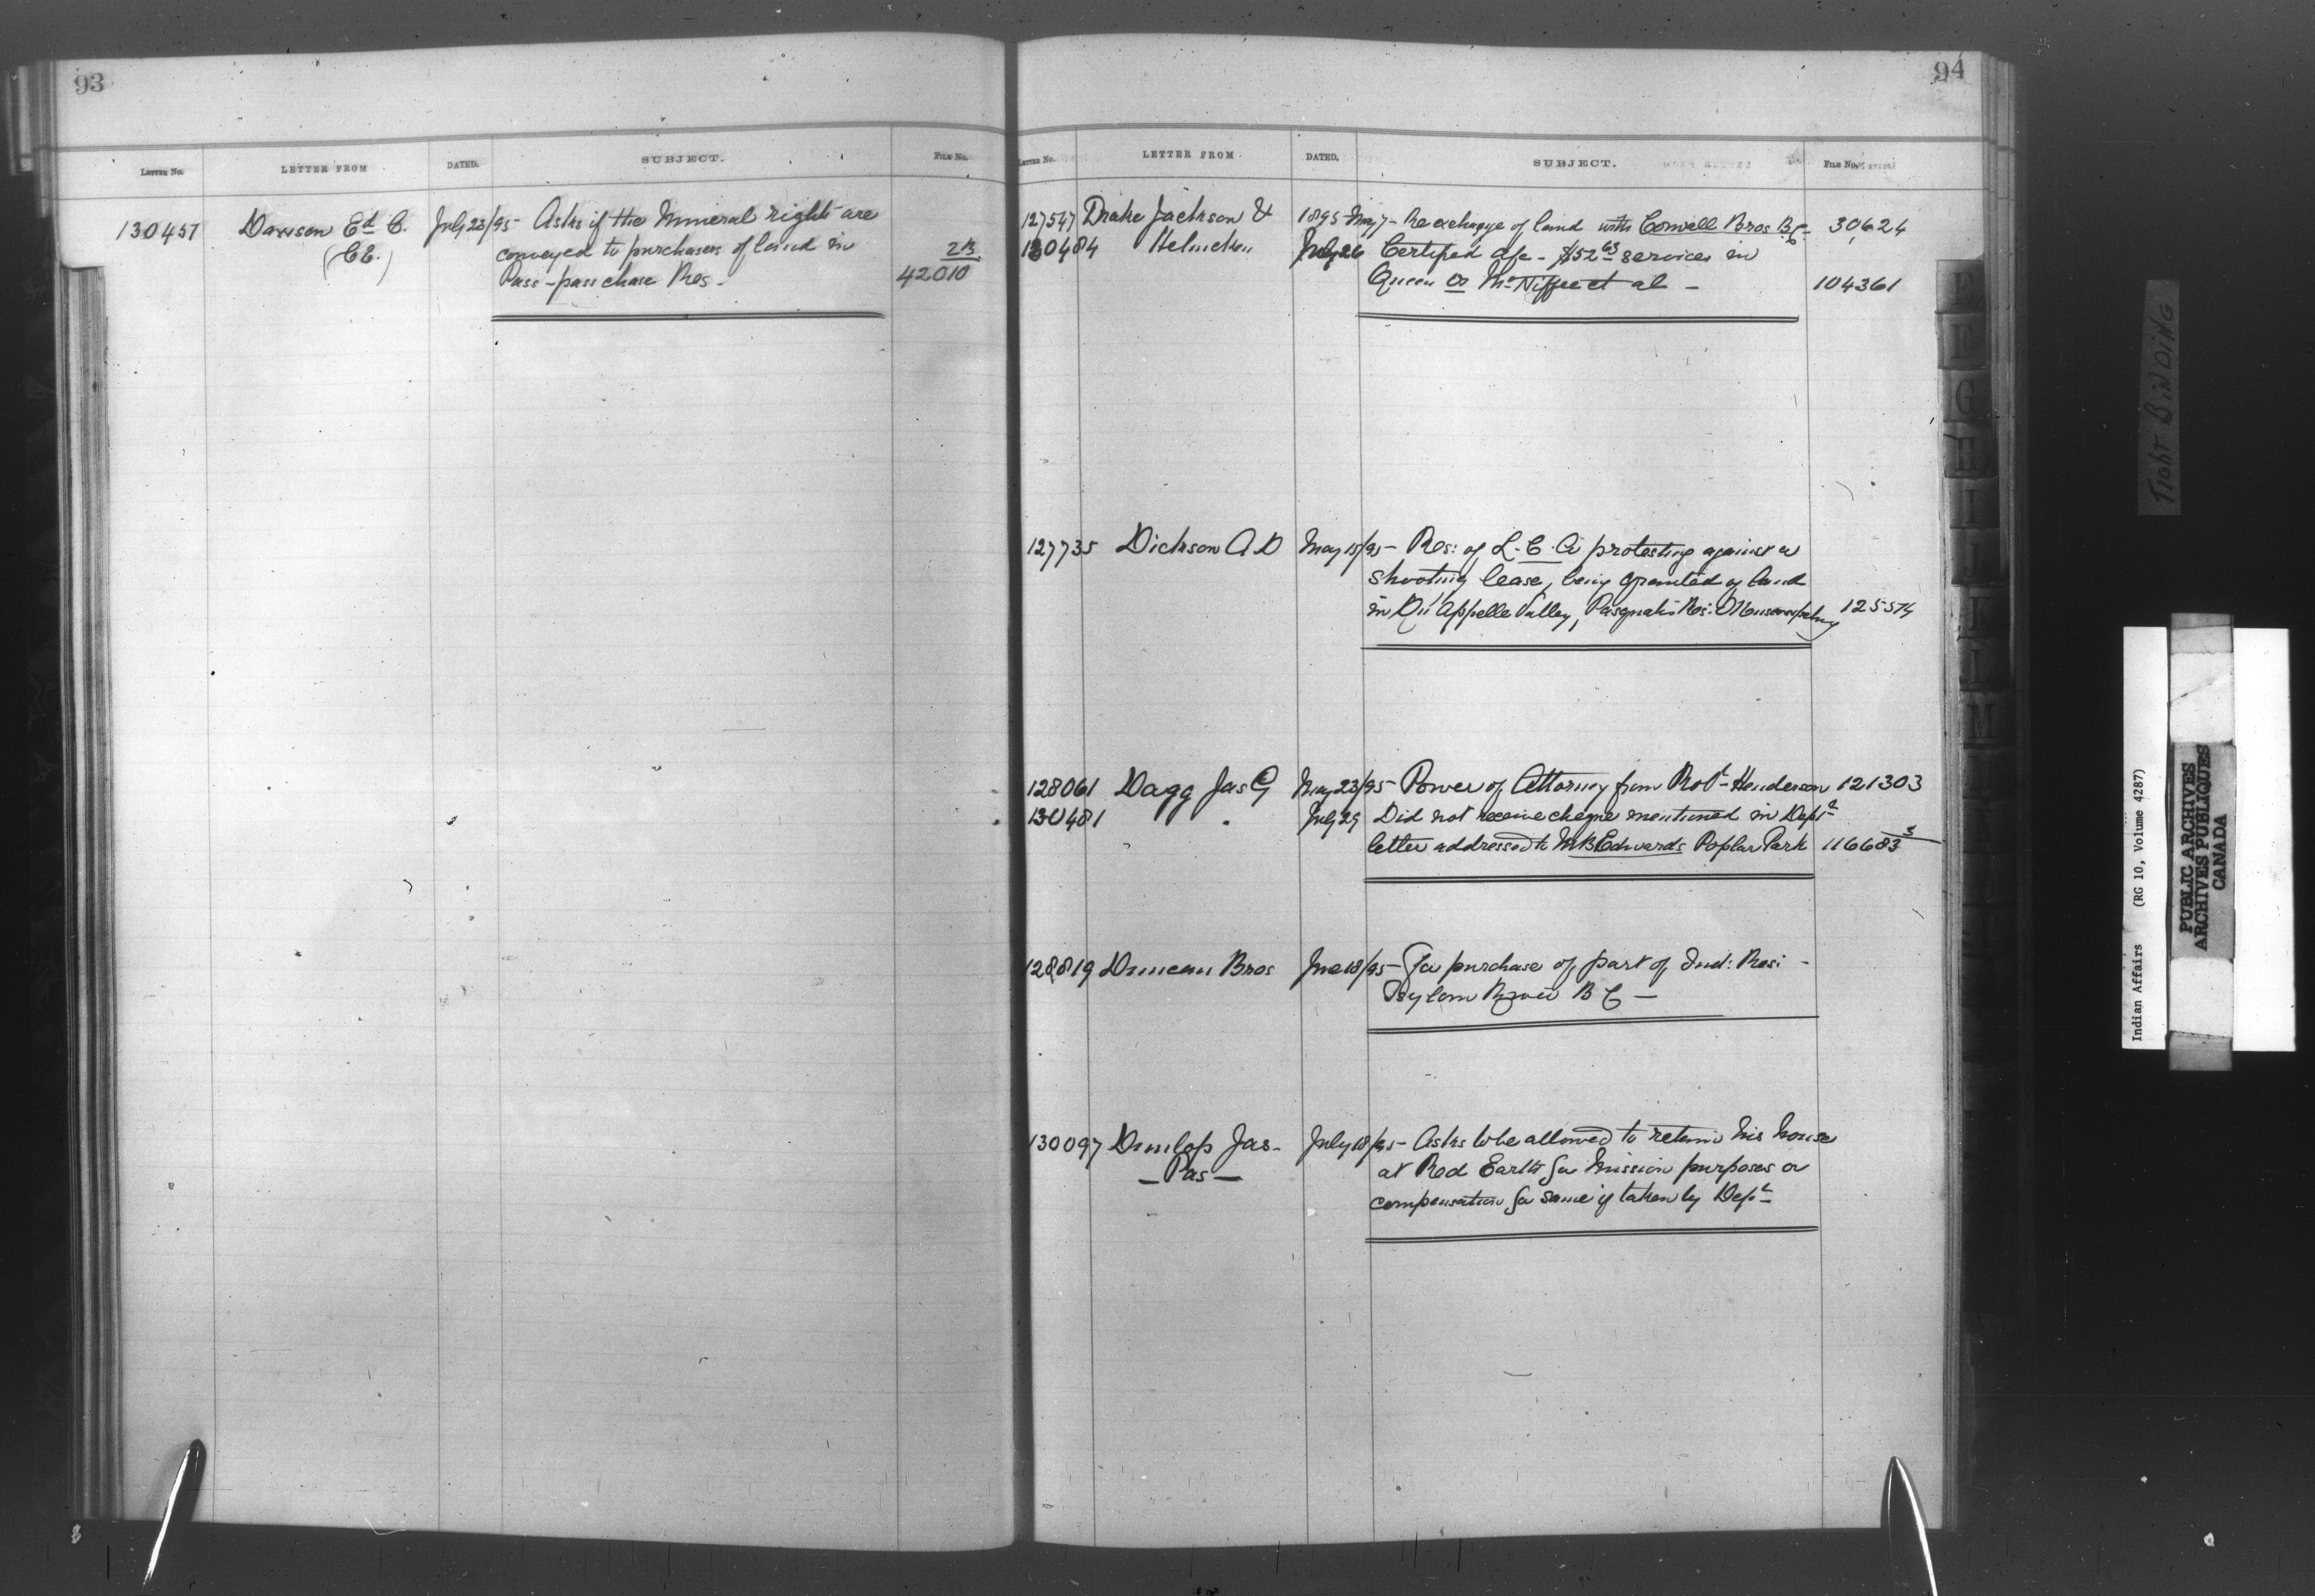 93
LETTER No. LETTER FROM DATED. SUBJECT. FILE No.
130457 Davison Ed C. July 23/95 - Asks if the Mineral rights are
(C.E.) conveyed to purchasers of land in 2B
Pass-passchase Res - 42010
94
LETTER No. LETTER FROM DATED. SUBJECT. FILE No.
127547 Drake Jackson & 1895 May 7 - Re exchange of land with Cornwall Bros B.C. 30624
130484 Helmcken July 26 Certified a/c - $52 63 services in
Queen vs et al - 104361
127735 Dickson A D May 15/95 - Res: of L. C. protesting against a
shooting lease, being granted of land
in Qu'Appelle Valley, Pasquah's Res: 125574
128061 Dagg Jas G May 23/95 - Power of Attorney from Robt Henderson 121303
130481 " July 29 Did not receive cheque mentioned in Dept's
letter addressed to Edwards Poplar Park 116683 3
128819 Duncan Bros June 18/95 - For purchase of part of Ind: Res: -
River B C -
130097 Dunlop Jas - July 18/95 - Asks to be allowed to retain his house
- Pas - at Red Earth for Mission purposes or
compensation for same if taken by Dept
E
F
G
H
I
M
TIGHT BINDING
Indian Affairs (RG 10, Volume 4287)
PUBLIC ARCHIVES
ARCHIVES PUBLIQUES
CANADA